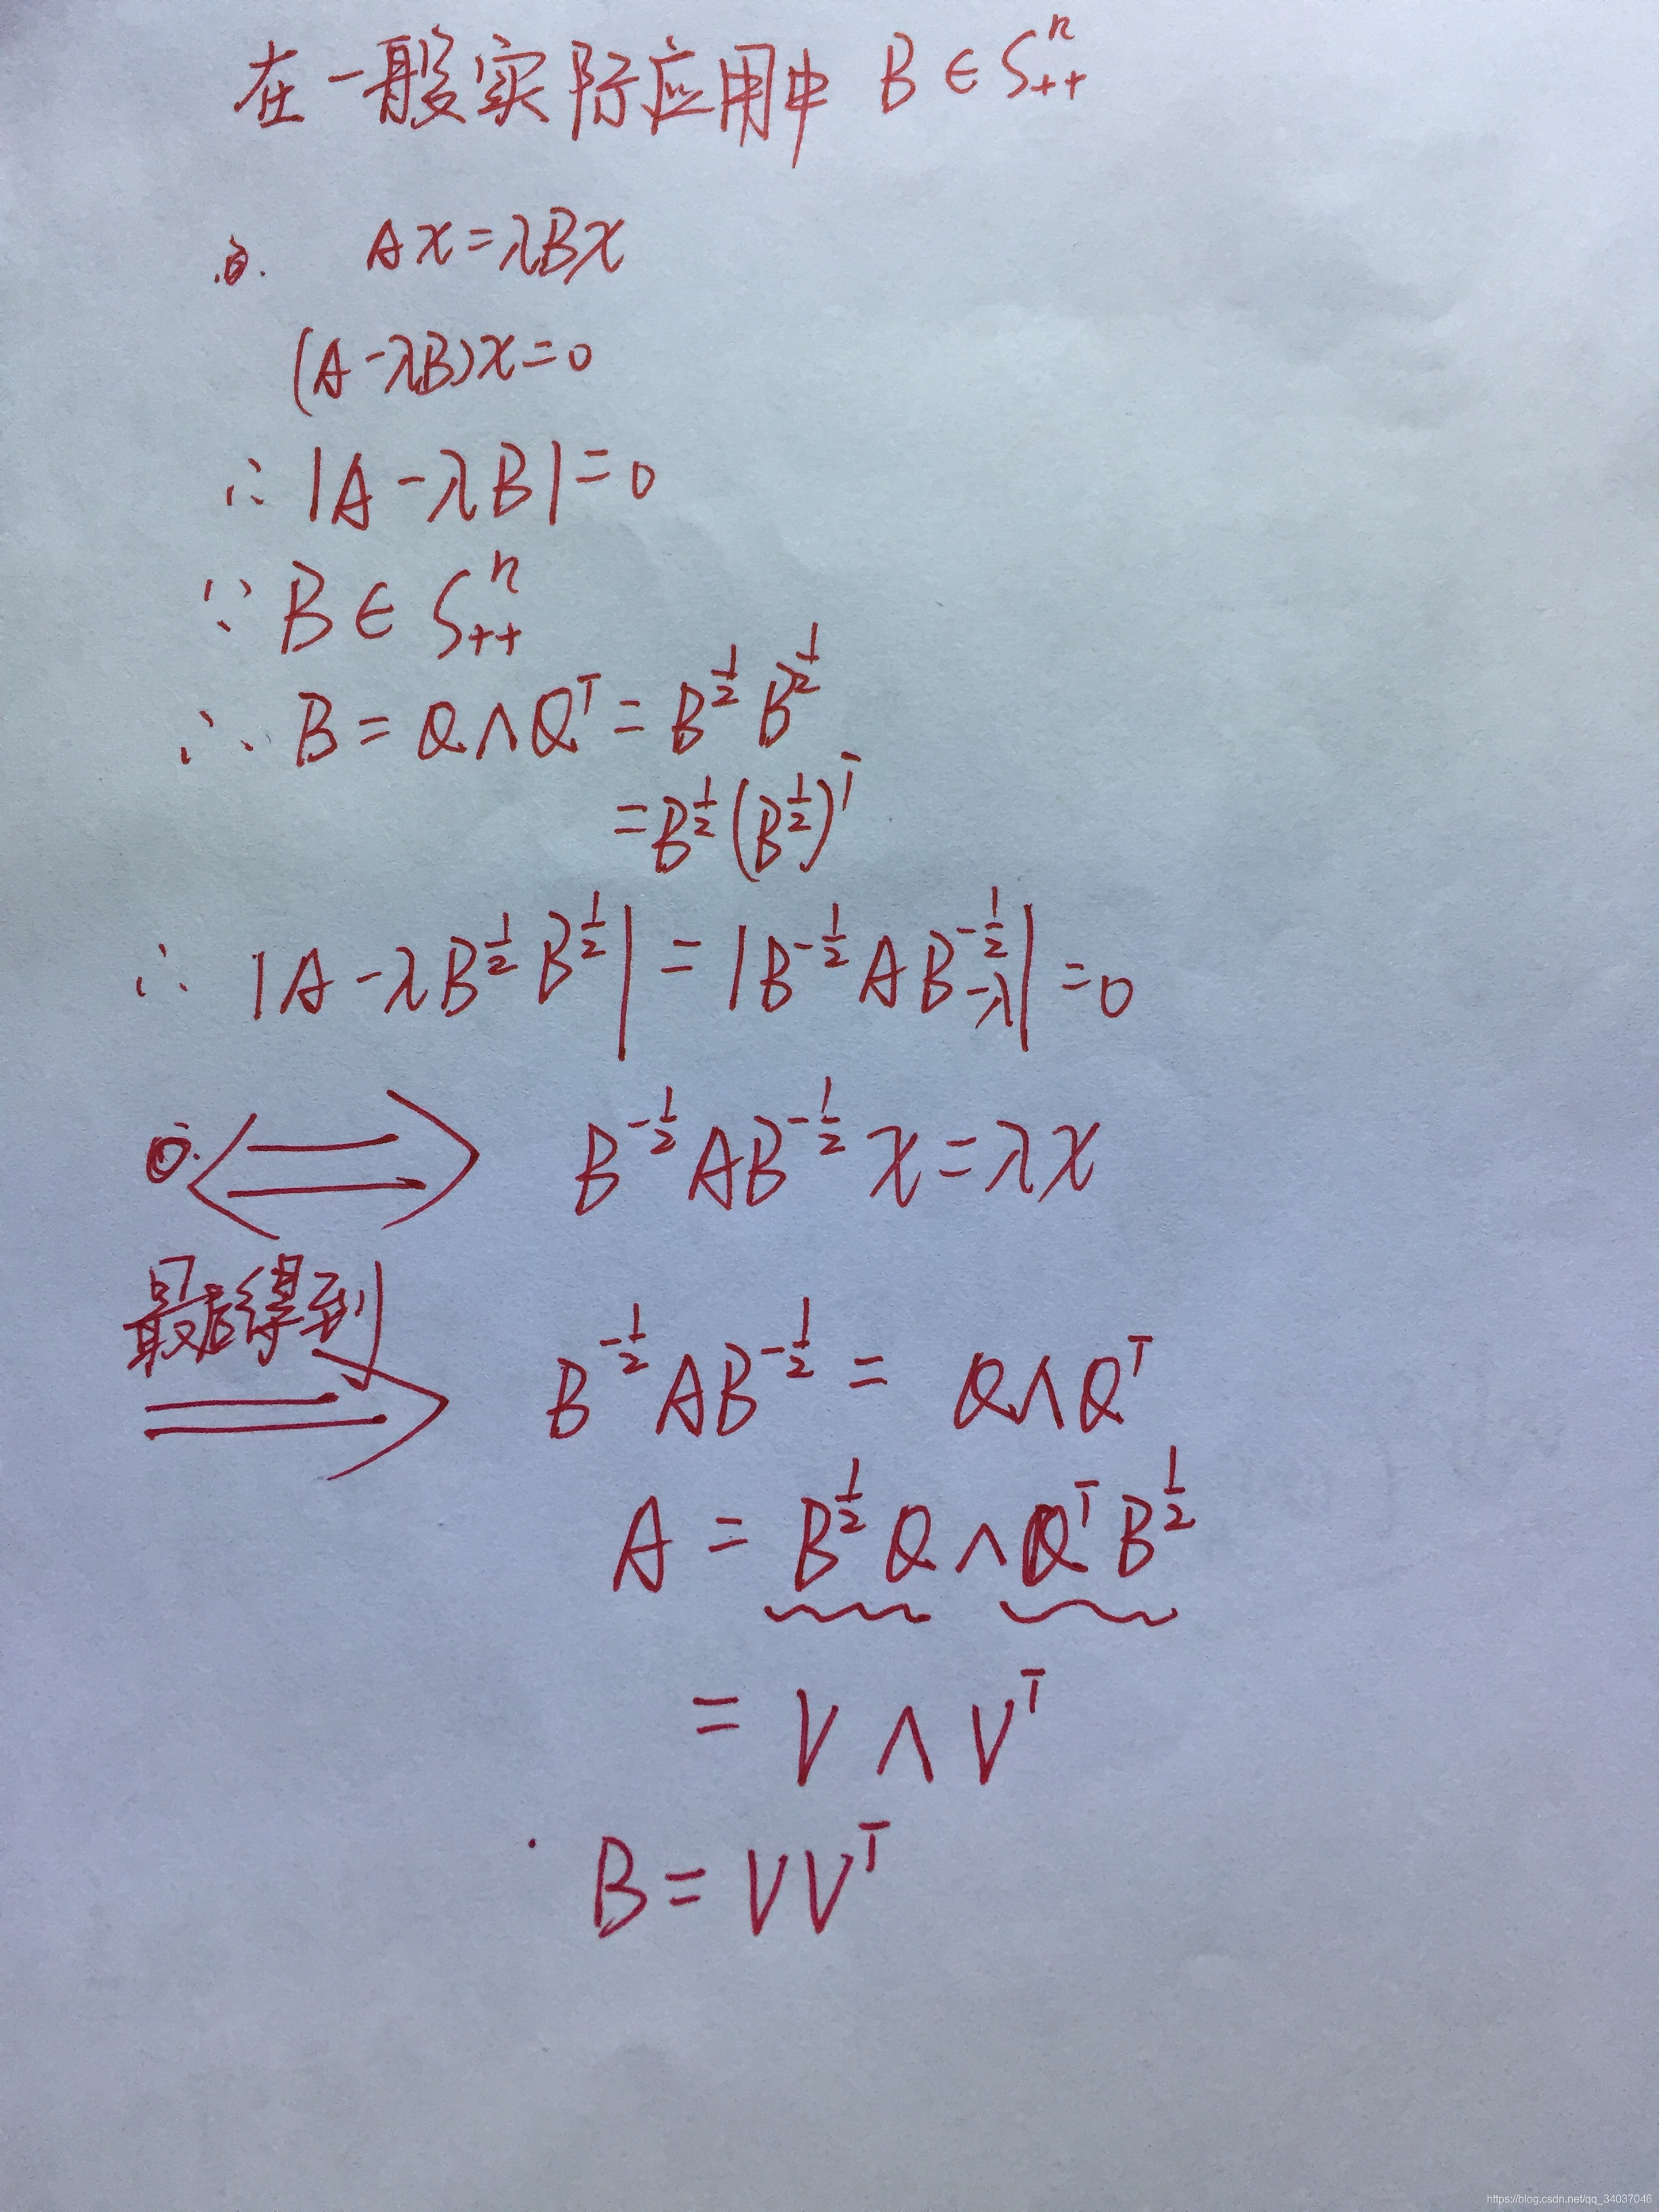 在一般实际应用中 B ∈ S₊₊ⁿ
Ax = λBx
(A - λB)x = 0
∴ |A - λB| = 0
∵ B ∈ S₊₊ⁿ
∴ B = QΛQᵀ = B^{1/2} B^{1/2}
= B^{1/2} (B^{1/2})ᵀ
∴ |A - λB^{1/2} B^{1/2}| = |B^{-1/2} A B^{-1/2} - λ| = 0
⟺ B^{-1/2} A B^{-1/2} x = λx
最后得到
⟹ B^{-1/2} A B^{-1/2} = QΛQᵀ
A = B^{1/2} Q Λ Qᵀ B^{1/2}
= V Λ Vᵀ
B = VVᵀ
https://blog.csdn.net/qq_34037046